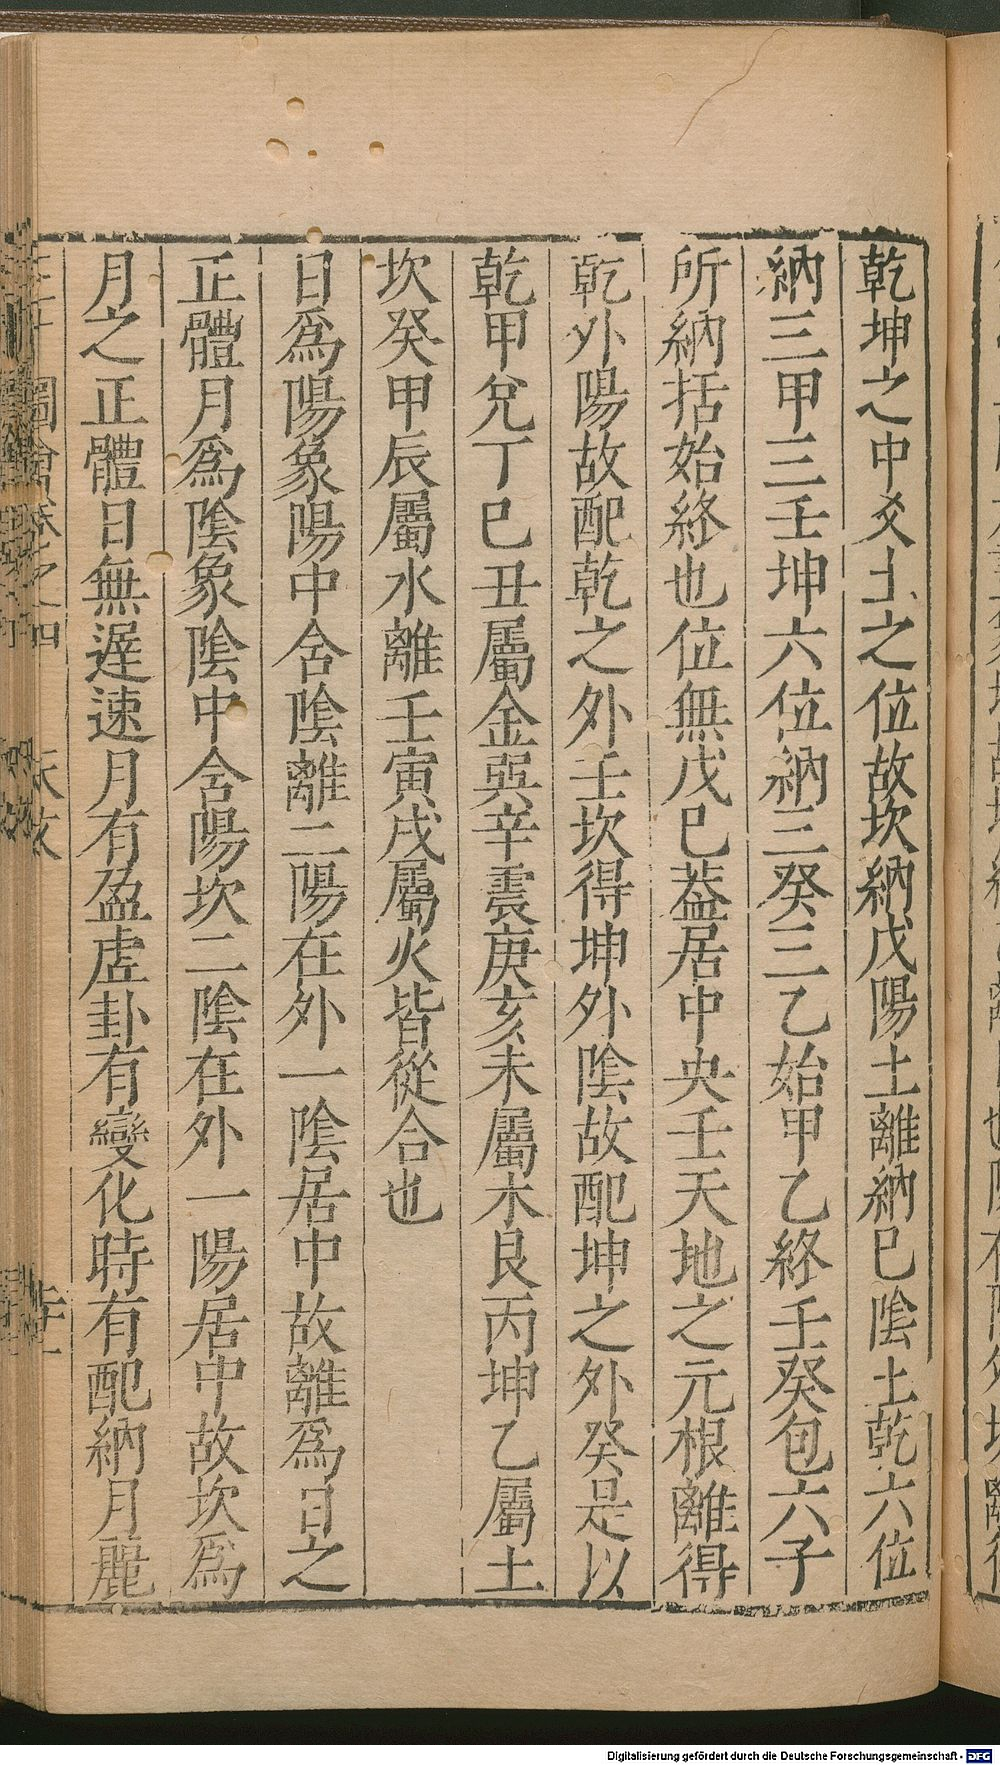 乾坤之中爻土之位故坎納戊陽土離納巳陰土乾六位
納三甲三壬坤六位納三癸三乙始甲乙終壬癸包六子
所納括始終也位無戊巳葢居中央壬天地之元根離得
乾外陽故配乾之外壬坎得坤外陰故配坤之外癸是以
乾甲兌丁巳丑屬金巽辛震庚亥未屬木艮丙坤乙屬土
坎癸甲辰屬水離壬寅戌屬火皆從合也
日爲陽象陽中含陰離二陽在外一陰居中故離爲日之
正體月爲陰象陰中含陽坎二陰在外一陽居中故坎爲
月之正體日無遲速月有盈虛卦有變化時有配納月麗
Digitalisierung gefördert durch die Deutsche Forschungsgemeinschaft - DFG